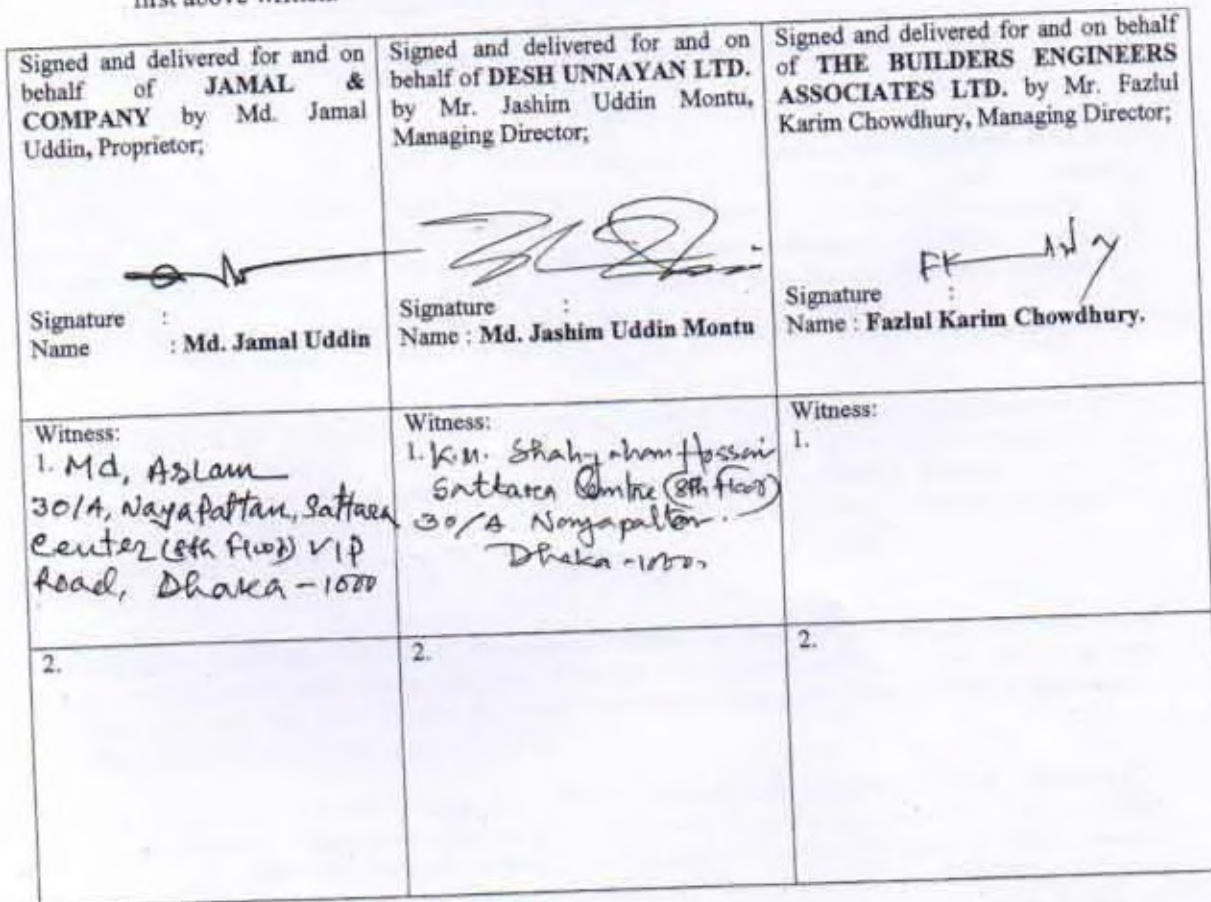 first above written.
Signed and delivered for and on
behalf of JAMAL &
COMPANY by Md. Jamal
Uddin, Proprietor;
Signature :
Name : Md. Jamal Uddin
Signed and delivered for and on
behalf of DESH UNNAYAN LTD.
by Mr. Jashim Uddin Montu,
Managing Director;
Signature :
Name : Md. Jashim Uddin Montu
Signed and delivered for and on behalf
of THE BUILDERS ENGINEERS
ASSOCIATES LTD. by Mr. Fazlul
Karim Chowdhury, Managing Director;
Signature :
Name : Fazlul Karim Chowdhury.
Witness:
1. Md, Aslam
30/A, Nayapaltan, Sattara
Center (8th floor) VIP
Road, Dhaka - 1000
Witness:
1. K.M. Hossain
Sattara Centre (8th floor)
30/A Nayapaltan.
Dhaka - 1000.
Witness:
1.
2.
2.
2.